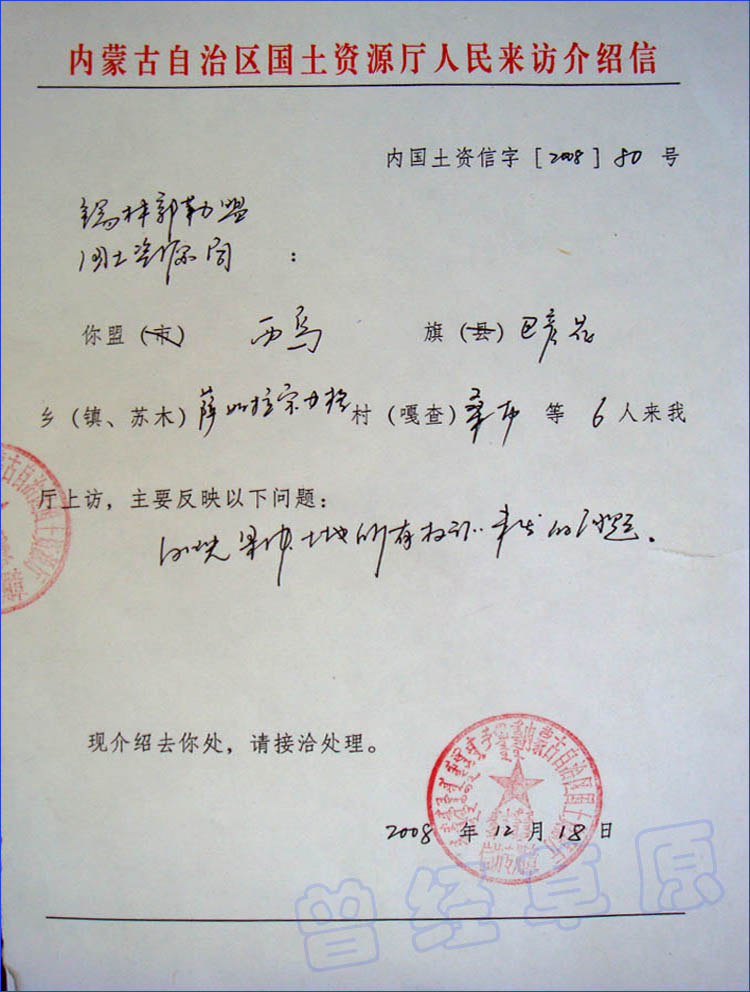 内蒙古自治区国土资源厅人民来访介绍信
内国土资信字[2008]80号
锡林郭勒盟
国土资源局：
你盟(市) 西乌 旗(县)巴彦花
乡(镇、苏木) 村(嘎查)桑布等6人来我
厅上访，主要反映以下问题：
反映集体土地所有权证 的问题。
现介绍去你处，请接洽处理。
内蒙古自治区国土资源厅
信访专用章
2008年12月18日
曾经草原